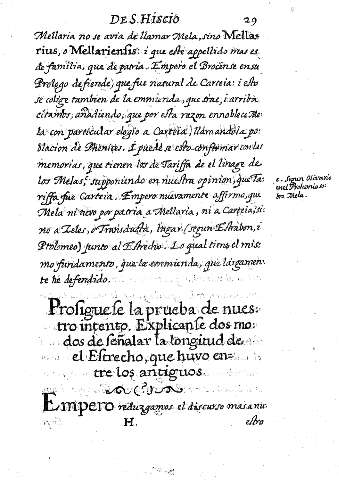 DE S. HISCIO 29
Mellaria no se avia de llamar Mela, sino Mella-
rius, o Mellariensis: i que este appellido mas es
de familia, que de patria. Empero el Brocense en su
Prologo defiende, que fue natural de Carteia: i esto
se colige tambien de la emmiunda, que trae, i arriba
citamos, añadiendo, que por esta razon ennoblece Me-
la con particular elogio a Carteia, llamandola po-
blacion de Phenices. I puede a esto confirmar con las
memorias, que tienen los de Tariffa de el linage de
los Melas, supponiendo en nuestra opinion, que Ta-
riffa fue Carteia. Empero nuevamente affirmo, que
Mela ni tuvo por patria a Mellaria, ni a Carteia, si-
no a Zeles, o Trasducta, lugar (segun Estrabon, i
Ptolomeo) junto al Estrecho. Lo qual tiene el mis-
mo fundamento, que la emmienda, que largamen-
te he defendido.
c. Segun Olivario
en el Prohemio so-
bre Mela.
Prosiguese la prueba de nues-
tro intento. Explicanse dos mo-
dos de señalar la longitud de
el Estrecho, que huvo en-
tre los antiguos.
Empero reduzgamos el discurso mas a nu-
H. estro